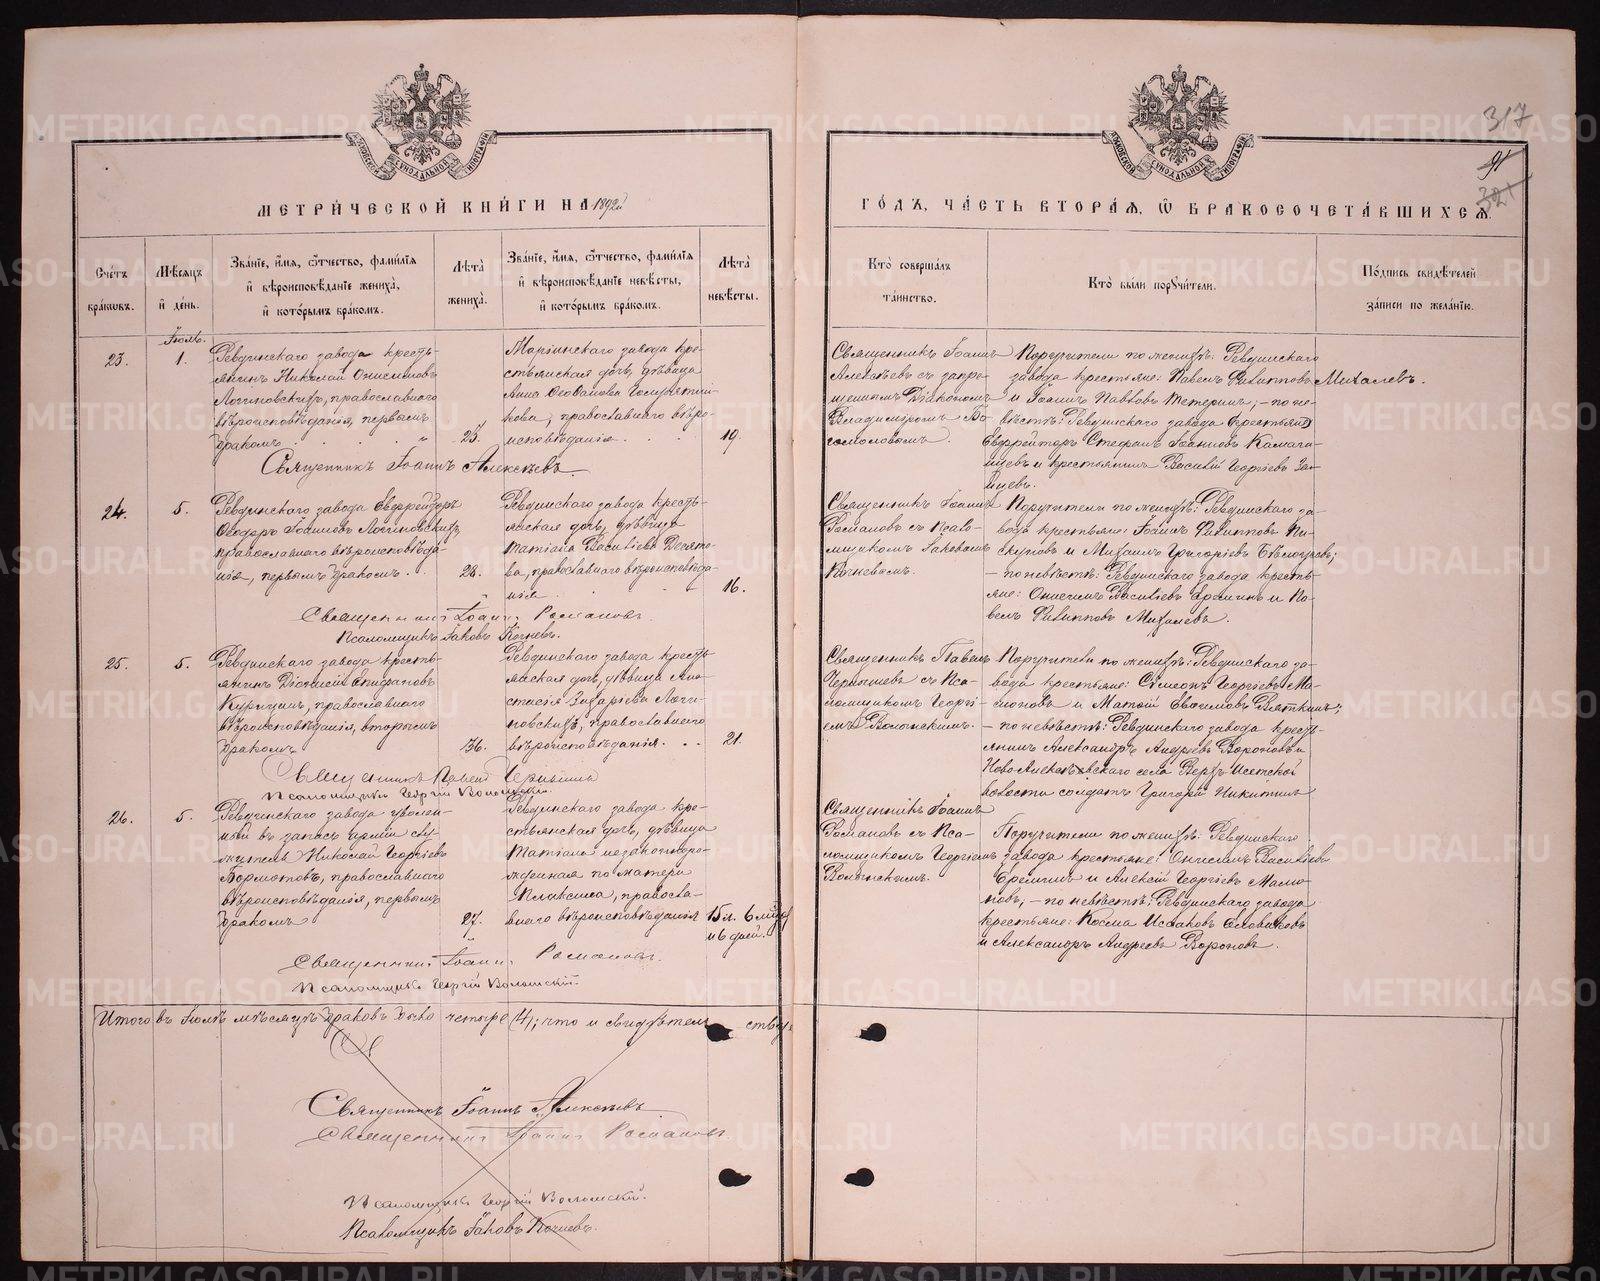 МЕТРИЧЕСКОЙ КНИГИ НА 1892й
ГОДЪ, ЧАСТЬ ВТОРАЯ, Ѽ БРАКОСОЧЕТАВШИХСЯ.
317
91
321
Счетъ браковъ.
Мѣсяцъ и день.
Званіе, имя, ѻтчество, фамилія
и вѣроисповѣданіе жениха,
и которымъ бракомъ.
Лѣта жениха.
Званіе, имя, ѻтчество, фамилія
и вѣроисповѣданіе невѣсты,
и которымъ бракомъ.
Лѣта невѣсты.
Кто совершалъ
таинство.
Кто были поручители.
Подпись свидѣтелей
записи по желанію.
Іюль.
23.
1.
Ревдинскаго завода кресть-
янинъ Николай Онисимовъ
Логиновскихъ, православнаго
вѣроисповѣданія, первымъ
бракомъ
25.
Маріинскаго завода кре-
стьянская дочь, дѣвица
Анна
православнаго вѣро-
исповѣданія
19.
Священникъ Іоаннъ
Алексѣевъ съ
Діакономъ
Владиміромъ Бо-
гомоловымъ.
Поручители по женихѣ: Ревдинскаго
завода крестьяне: Павелъ Филипповъ Михалевъ
и Іоаннъ Павловъ Тетеринъ; - по не-
вѣстѣ: Ревдинскаго завода
Ефрейторъ Стефанъ Іоанновъ
и крестьянинъ Василій Георгіевъ Зай-
цевъ.
Священникъ Іоаннъ Алексѣевъ
24.
5.
Ревдинскаго завода Ефрейторъ
Ѳеодоръ Іоанновъ Логиновскихъ,
православнаго вѣроисповѣда-
нія, первымъ бракомъ.
28.
Ревдинскаго завода кресть-
янская дочь, дѣвица
Татіана Васильева Десято-
ва, православнаго вѣроисповѣда-
нія
16.
Священникъ Іоаннъ
Романовъ съ Псало-
мщикомъ Іаковомъ
Кочневымъ.
Поручители по женихѣ: Ревдинскаго за-
вода крестьяне: Іоаннъ Филипповъ Пи-
скуновъ и Михаилъ Григорьевъ
- по невѣстѣ: Ревдинскаго завода кресть-
яне: Онисимъ Васильевъ Ереминъ и Па-
велъ Филипповъ Михалевъ.
Священникъ Іоаннъ Романовъ.
Псаломщикъ Іаковъ Кочневъ.
25.
5.
Ревдинскаго завода кресть-
янинъ Діонисій Епифановъ
Курицынъ, православнаго
вѣроисповѣданія, вторымъ
бракомъ
36.
Ревдинскаго завода кресть-
янская дочь, дѣвица Ана-
стасія Захаріева Логи-
новскихъ, православнаго
вѣроисповѣданія.
21.
Священникъ Павелъ
Чернышевъ съ Пса-
ломщикомъ Георгі-
емъ Волынскимъ.
Поручители по женихѣ: Ревдинскаго за-
вода крестьяне: Сѵмеонъ Георгіевъ Ма-
моновъ и Матѳій Евфимовъ Вяткинъ;
- по невѣстѣ: Ревдинскаго завода кресть-
янинъ Александръ Андреевъ Вороновъ и
Новоалексѣевскаго села Верхъ-Исетской
волости солдатъ Григорій Никитинъ
Священникъ Павелъ Чернышевъ
Псаломщикъ Георгій Волынскій.
26.
5.
Ревдинскаго завода уволен-
ный въ запасъ арміи слу-
житель Николай Георгіевъ
Бормотовъ, православнаго
вѣроисповѣданія, первымъ
бракомъ
27.
Ревдинскаго завода кре-
стьянская дочь, дѣвица
Татіана незаконноро-
жденная по матери
православ-
наго вѣроисповѣданія
15 л. 6 мѣсяц.
и 6 дней.
Священникъ Іоаннъ
Романовъ съ Пса-
ломщикомъ Георгіемъ
Волынскимъ.
Поручители по женихѣ: Ревдинскаго
завода крестьяне: Онисимъ Васильевъ
Ереминъ и Алексій Георгіевъ Мамо-
новъ, - по невѣстѣ: Ревдинскаго завода
крестьяне: Косма Исааковъ
и Александръ Андреевъ Вороновъ.
Священникъ Іоаннъ Романовъ.
Псаломщикъ Георгій Волынскій.
Итого въ Іюлѣ мѣсяцѣ браковъ было четыре (4); что и свидѣтельствуемъ
Священникъ Іоаннъ Алексѣевъ
Священникъ Іоаннъ Романовъ.
Псаломщикъ Георгій Волынскій.
Псаломщикъ Іаковъ Кочневъ.
METRIKI.GASO-URAL.RU